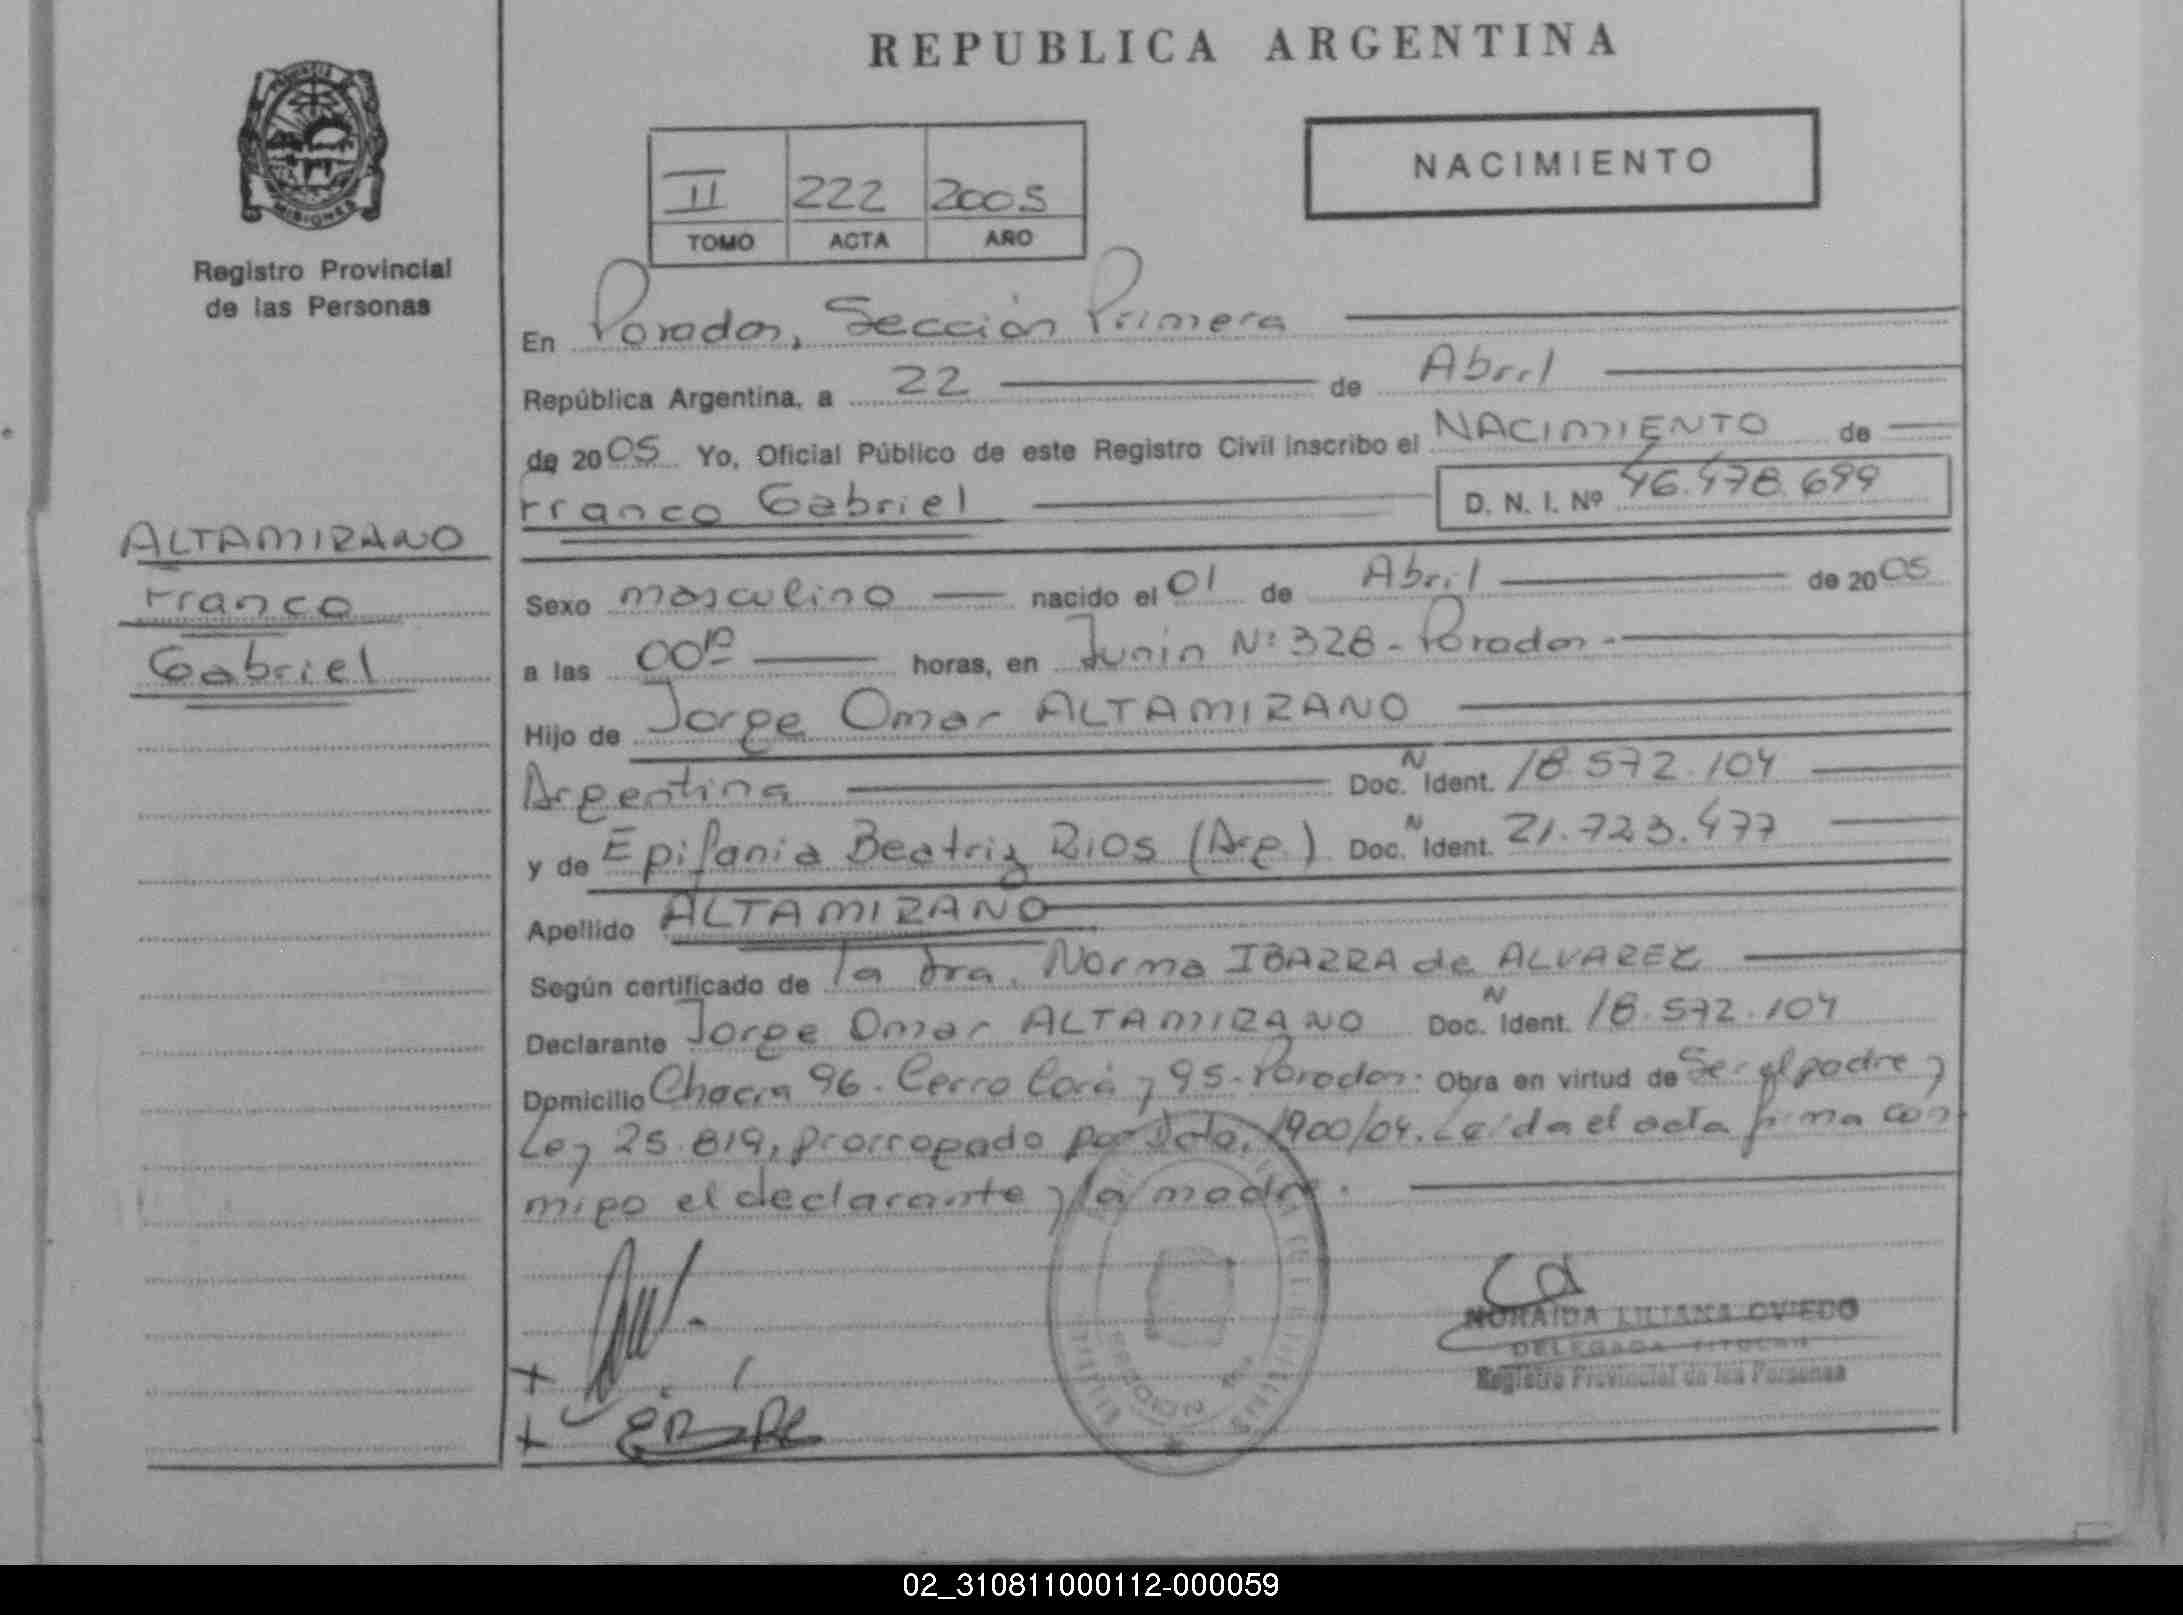 REPUBLICA ARGENTINA
PROVINCIA DE
MISIONES
Registro Provincial
de las Personas
II 222 2005
TOMO ACTA AÑO
NACIMIENTO
En Posadas, Sección Primera
República Argentina, a 22 de Abril
de 2005 Yo, Oficial Público de este Registro Civil inscribo el NACIMIENTO de
Franco Gabriel D. N. I. Nº 46.478.699
ALTAMIRANO
Franco
Gabriel
Sexo masculino nacido el 01 de Abril de 2005
a las 00 horas, en Junin Nº 328 - Posadas -
Hijo de Jorge Omar ALTAMIRANO
Argentina Doc. N Ident. 18.572.104
y de Epifania Beatriz RIOS (Arg.) Doc. N Ident. 21.723.477
Apellido ALTAMIRANO
Según certificado de la Dra. Norma IBARRA de ALVAREZ
Declarante Jorge Omar ALTAMIRANO Doc. N Ident. 18.572.104
Domicilio Chacra 96 - Cerro Corá y 95 - Posadas - Obra en virtud de Ser el padre y
Ley 25.819, prorrogado por Dcto. 1900/04. Leída el acta firma con
migo el declarante y la madre.
NORAIDA LILIANA OVIEDO
DELEGADA TITULAR
Registro Provincial de las Personas
02_310811000112-000059